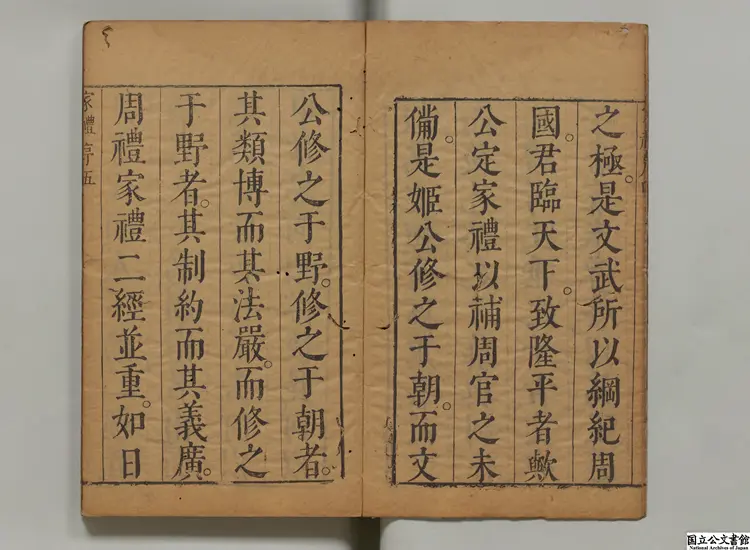 之極。是文武所以綱紀周
國。君臨天下。致隆平者歟
公定家禮以補周官之未
備。是姬公修之于朝。而文
公修之于野。修之于朝者。
其類博而其法嚴。而修之
于野者。其制約而其義廣。
周禮家禮二經並重。如日
家禮 序 五
国立公文書館
National Archives of Japan